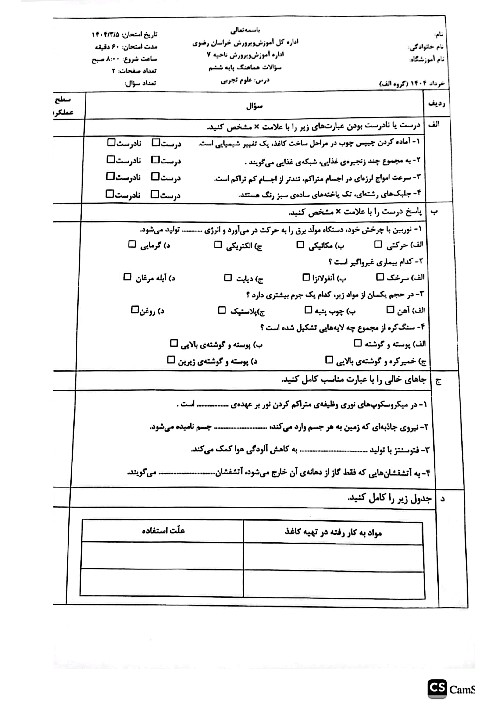 باسمه‌تعالی
نام:
اداره کل آموزش‌وپرورش خراسان رضوی
تاریخ امتحان: ۱۴۰۴/۳/۵
نام خانوادگی:
اداره آموزش‌وپرورش ناحیه ۷
مدت امتحان: ۶۰ دقیقه
نام آموزشگاه:
سؤالات هماهنگ پایه ششم
ساعت شروع: ۸:۰۰ صبح
درس: علوم تجربی
تعداد صفحات: ۲
خرداد ۱۴۰۴ (گروه الف)
تعداد سؤال:
ردیف سؤال سطح عملکرد
الف درست یا نادرست بودن عبارت‌های زیر را با علامت × مشخص کنید.
۱- آماده کردن چیپس چوب در مراحل ساخت کاغذ، یک تغییر شیمیایی است. درست☐ نادرست☐
۲- به مجموع چند زنجیره‌ی غذایی، شبکه‌ی غذایی می‌گویند. درست☐ نادرست☐
۳- سرعت امواج لرزه‌ای در اجسام متراکم، تندتر از اجسام کم تراکم است. درست☐ نادرست☐
۴- جلبک‌های رشته‌ای، تک یاخته‌های ساده‌ی سبز رنگ هستند. درست☐ نادرست☐
ب پاسخ درست را با علامت × مشخص کنید.
۱- توربین با چرخش خود، دستگاه مولد برق را به حرکت در می‌آورد و انرژی ......... تولید می‌شود.
الف) حرکتی ☐ ب) مکانیکی ☐ ج) الکتریکی ☐ د) گرمایی ☐
۲- کدام بیماری غیرواگیر است ؟
الف) سرخک ☐ ب) آنفولانزا ☐ ج) دیابت ☐ د) آبله مرغان ☐
۳- در حجم یکسان از مواد زیر، کدام یک جرم بیشتری دارد ؟
الف) آهن ☐ ب) چوب پنبه ☐ ج)پلاستیک ☐ د) روغن☐
۴- سنگ‌کره از مجموع چه لایه‌هایی تشکیل شده است ؟
الف) پوسته و گوشته ☐ ب) پوسته و گوشته‌ی بالایی ☐
ج) خمیرکره و گوشته‌ی بالایی ☐ د) پوسته و گوشته‌ی زیرین ☐
ج جاهای خالی را با عبارت مناسب کامل کنید.
۱- در میکروسکوپ‌های نوری وظیفه‌ی متراکم کردن نور بر عهده‌ی .............. است .
۲- نیروی جاذبه‌ای که زمین به هر جسم وارد می‌کند، ....................... جسم نامیده می‌شود.
۳- فتوسنتز با تولید ....................... به کاهش آلودگی هوا کمک می‌کند.
۴- به آتشفشان‌هایی که فقط گاز از دهانه‌ی آن خارج می‌شود، آتشفشان................... می‌گویند.
د جدول زیر را کامل کنید.
مواد به کار رفته در تهیه کاغذ علّت استفاده
CS CamS